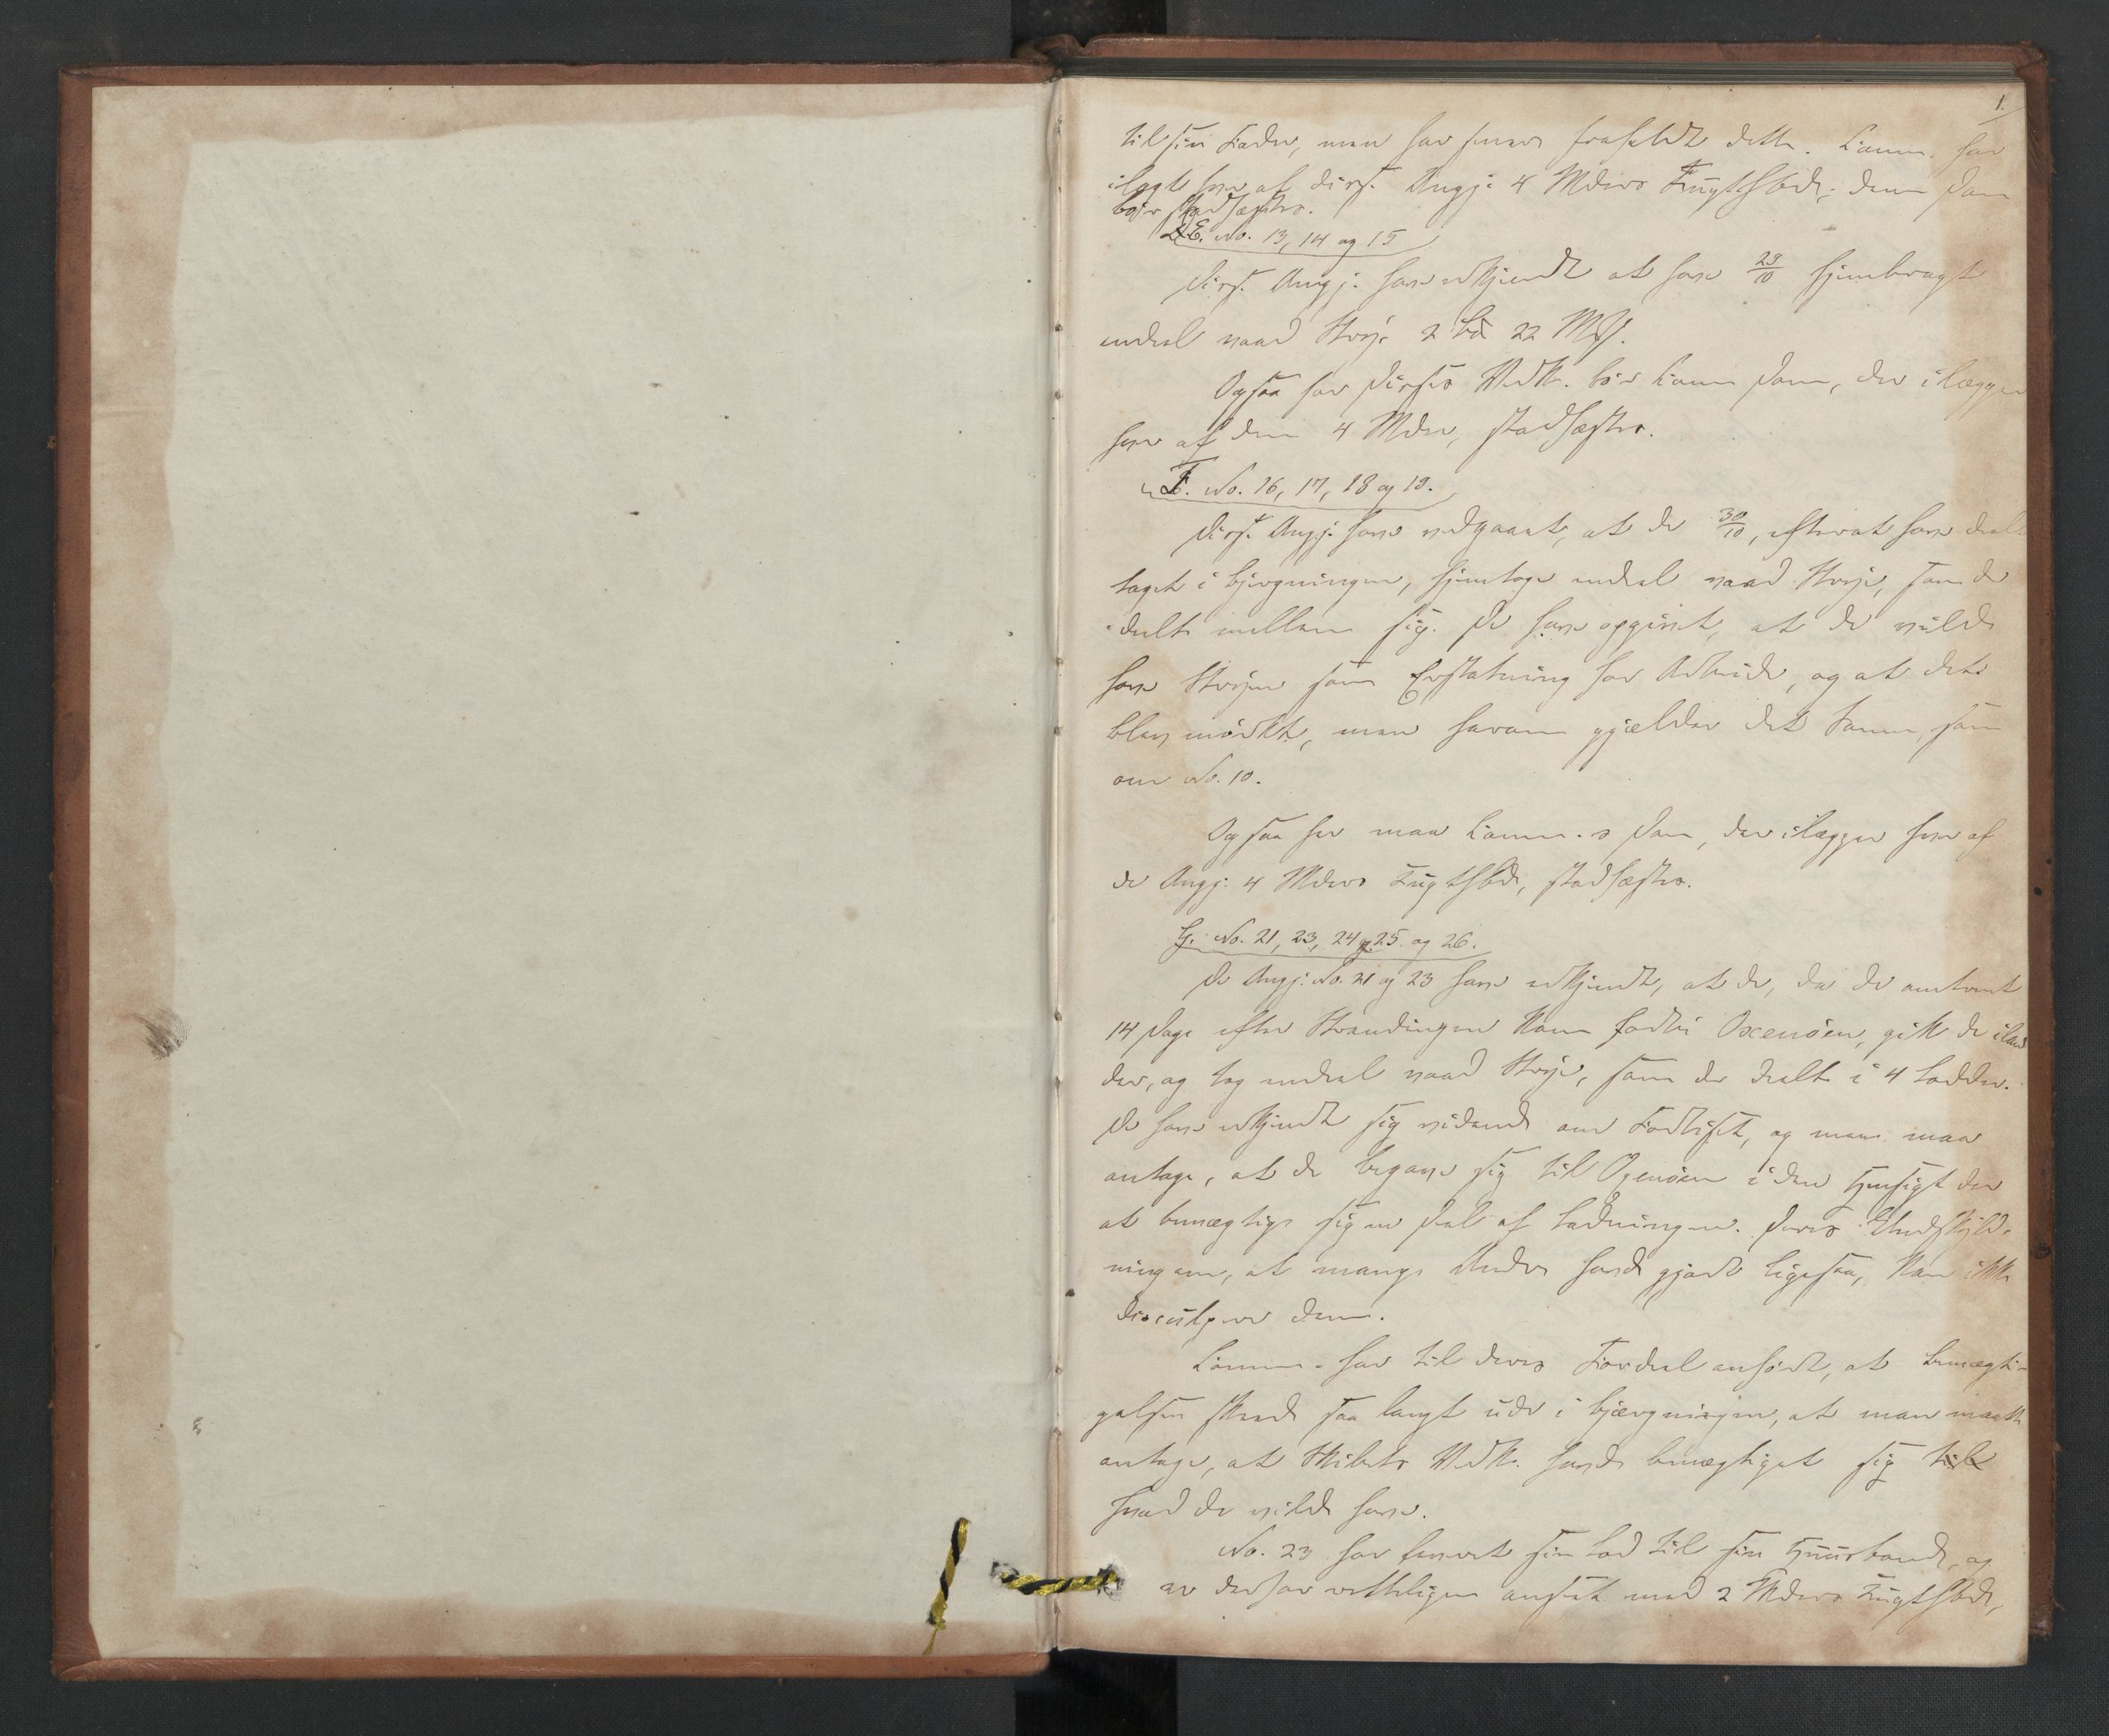 1.
til sin Fader, men har senere frafaldt dette. Comm. har
ilagt hver af disse Angj. 4 Mders Tugthbde; denne Dom
bør stadfæstes.
E. No. 13, 14 og 15
Disse Angj. have erkjendt at have 29/10 hjembragt
endeel vaad Strie 2 22
Ogsaa for disses Vedk. bør Comm Dom, der ilægger
hver af dem 4 Mder, stadfæstes.
F. No. 16, 17, 18 og 19.
Disse Angj. have vedgaaet, at de 30/10, efterat have deel
taget i bjergningen, hjemtoge endeel vaad Strie, som de
deelte mellem sig. De have opgivet, at de vilde
have Strien som Erstatning for Arbeide, og at det
blev mørkt, men herom gjælder det Samme, som
om No. 10.
Ogsaa her maa Comm.s Dom, der ilægger hver af
de Angj. 4 Mders Tugthbde, stadfæstes.
G. No. 21, 23, 24, 25 og 26.
De Angj. No. 21 og 23 have erkjendt, at de, da de omtrent
14 Dage efter Strandingen kom forbi Oxenöen, gik de iland
der, og tog endeel vaad Strie, som de deelte i 4 Lodder.
De have erkjendt sig vidende om Forliset, og man maa
antage, at de begave sig til Oxenöen i den Hensigt der
at bemægtige sig en Deel af Ladningen. Deres Undskyld-
ning om, at mange Andre havde gjort ligesaa, kan ikke
disculpere dem.
Comm. har til deres Fordeel anført, at bemægti-
gelsen skeede saa langt ude i bjærgningen, at man maatte
antage, at Skibets Vedk. havde bemægtiget sig
hvad de vilde have.
No. 23 har leveret sin Lod til sin Huusbonde, og
er derfor rettelig anseet med 2 Mders Tugthbde,